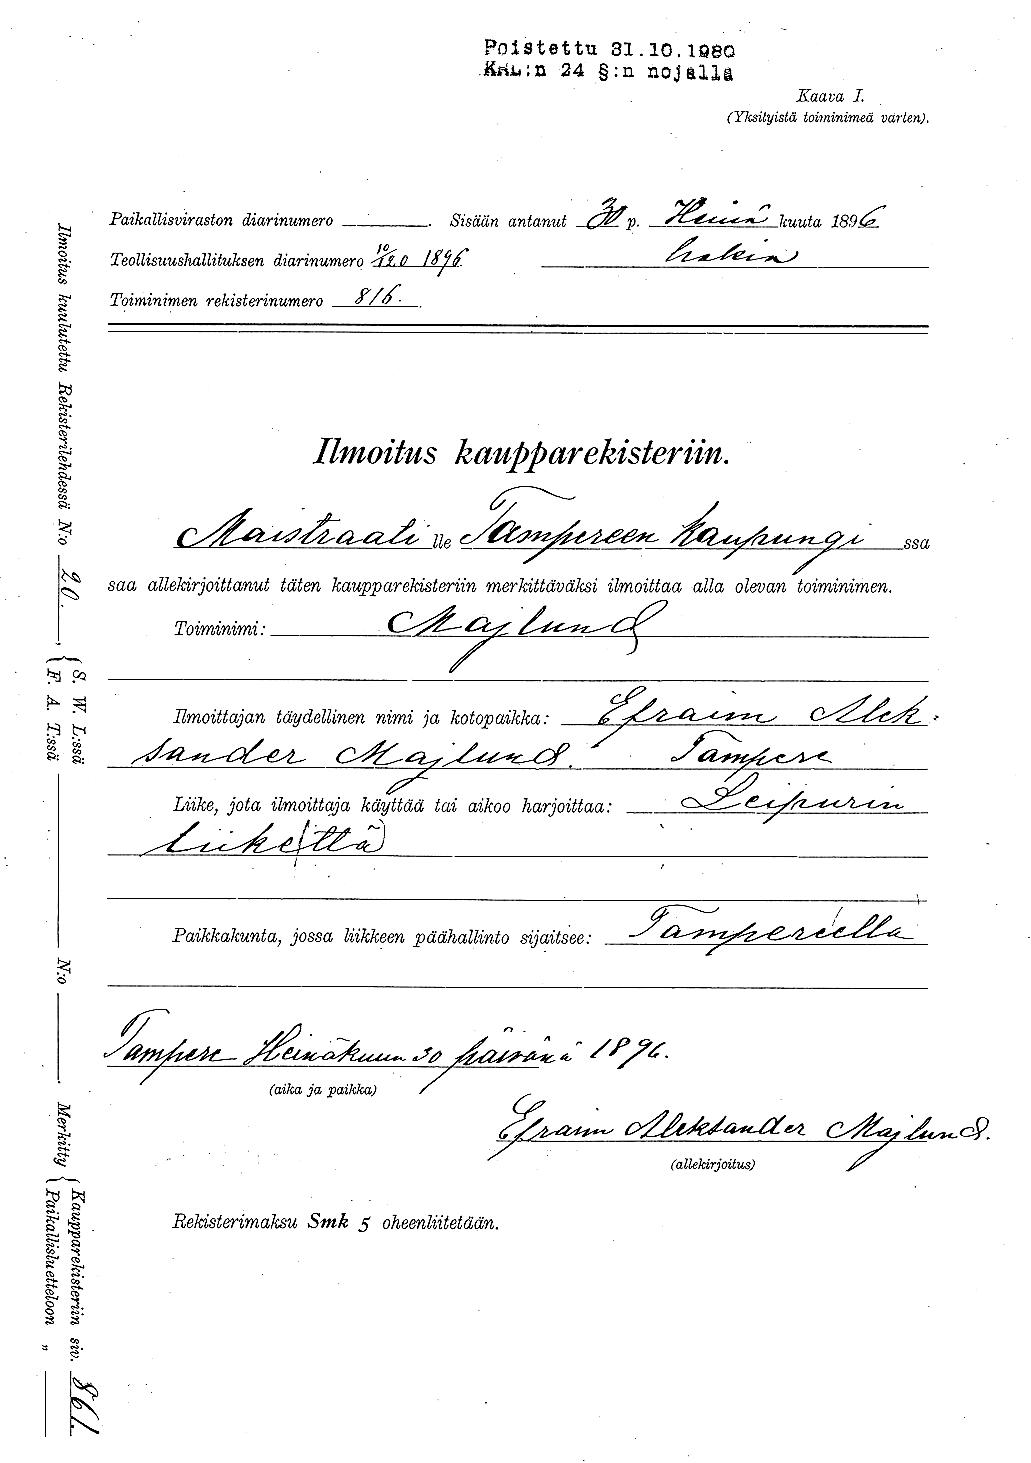 Poistettu 31.10.1980
KRL:n 24 §:n nojalla
Kaava I.
(Yksityistä toiminimeä varten).
Paikallisviraston diarinumero . Sisään antanut 30 p. Heinä kuuta 1896
Teollisuushallituksen diarinumero 10/120 1896 hakia
Toiminimen rekisterinumero 816.
Ilmoitus kaupparekisteriin.
Maistraati lle Tampereen kaupungi ssa
saa allekirjoittanut täten kaupparekisteriin merkittäväksi ilmoittaa alla olevan toiminimen.
Toiminimi: Majlund
Ilmoittajan täydellinen nimi ja kotopaikka: Efraim Alek-
sander Majlund. Tampere
Liike, jota ilmoittaja käyttää tai aikoo harjoittaa: Leipurin
liikettä
Paikkakunta, jossa liikkeen päähallinto sijaitsee: Tampereella
Tampere Heinäkuun 30 päivänä 1896.
(aika ja paikka)
Efraim Aleksander Majlund.
(allekirjoitus)
Rekisterimaksu Smk 5 oheenliitetään.
Ilmoitus kuulutettu Rekisterilehdessä N:o 20. , { S. W. L:ssä
F. A. T:ssä N:o .
Merkitty { Kaupparekisteriin siv. 861.
Paikallisluetteloon „